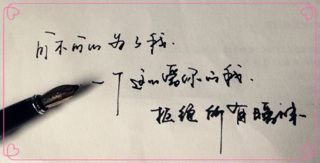 可不可以为了我.
一丁 这如需你的我.
拒绝所有暧昧.